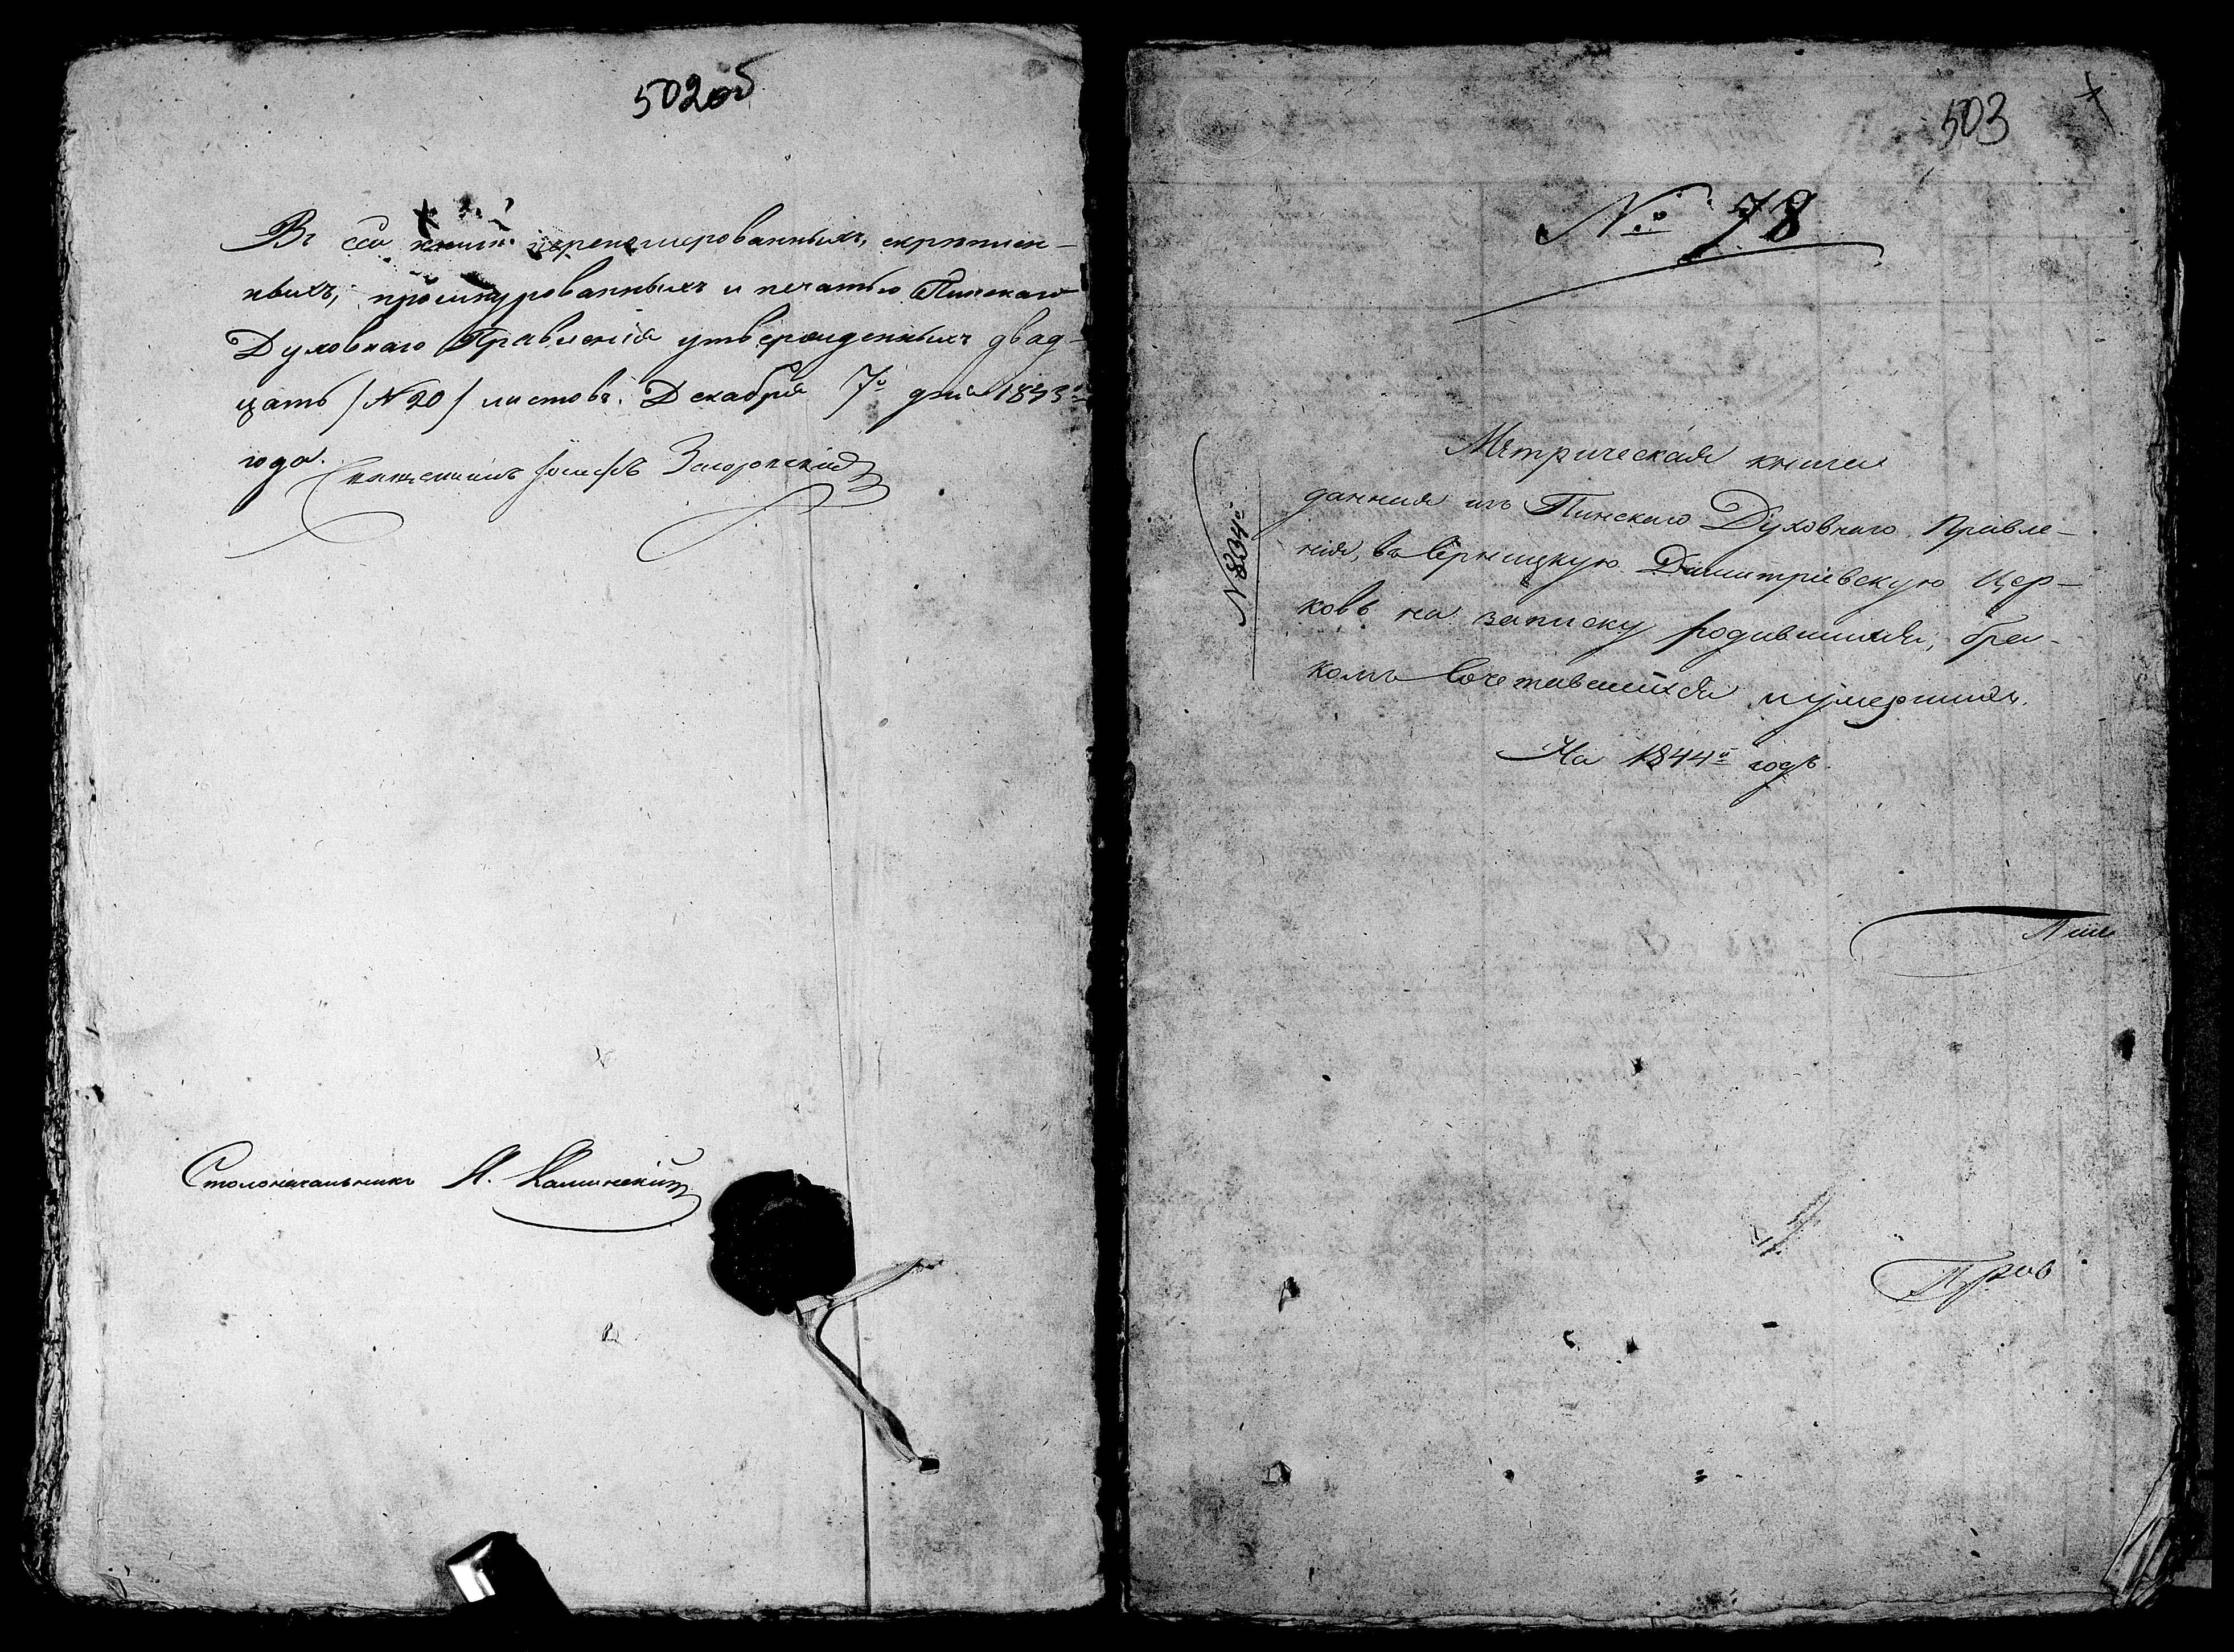 502об
Въ сей книгѣ перенумерованныхъ, скрѣплен-
ныхъ, прошнурованныхъ и печатью Пинскаго
Духовнаго Правленія утвержденныхъ двад-
цать /№ 20/ листовъ. Декабря 7го дня 1843го
года.
Священникъ Іосифъ Загоровскій
Столоначальникъ Калинскій
503
№ 78
№ 834й
Метрическая книга
данная изъ Пинскаго Духовнаго Правле-
нія, въ Серницкую Димитріевскую Цер-
ковь на записку родившихся, бра-
комъ Сочетавшихся и умершихъ.
На 1844й годъ.
Прав